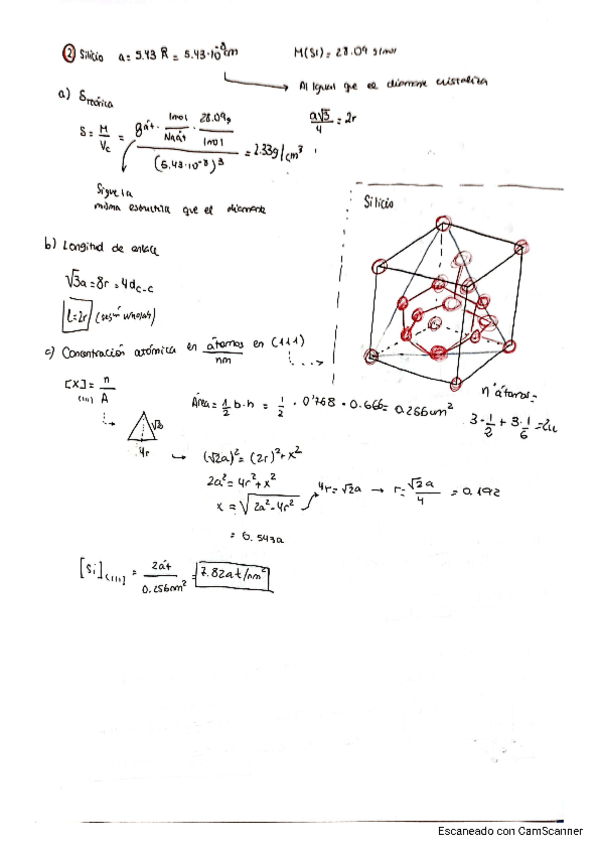 ② Silicio a= 5.43 Å = 5.43·10⁻⁸cm M(Si) = 28.09 g/mol
Al igual que el diamante cristaliza
a) δ teórica
δ = M/Vc = 8 át · 1mol/NA át · 28.09g/1mol / (5.43·10⁻⁸)³ = 2.33g/cm³
a√3/4 = 2r
Sigue la
misma estructura que el diamante
Silicio
b) Longitud de enlace
√3a = 8r = 4d c-c
l=2r
c) Concentración atómica en átomos/nm en (111)
[X] (111) = n/A
Área = 1/2 b·h = 1/2 · 0'768 · 0.666 = 0.256nm²
nºátomos =
3·1/2 + 3·1/6 = 2u
√2
4r
(√2a)² = (2r)² + x²
2a² = 4r² + x²
x = √2a²-4r²
4r = √2a → r = √2a/4 = 0.192
= 0.543a
[Si] (111) = 2át/0.256nm² = 7.82at/nm²
Escaneado con CamScanner